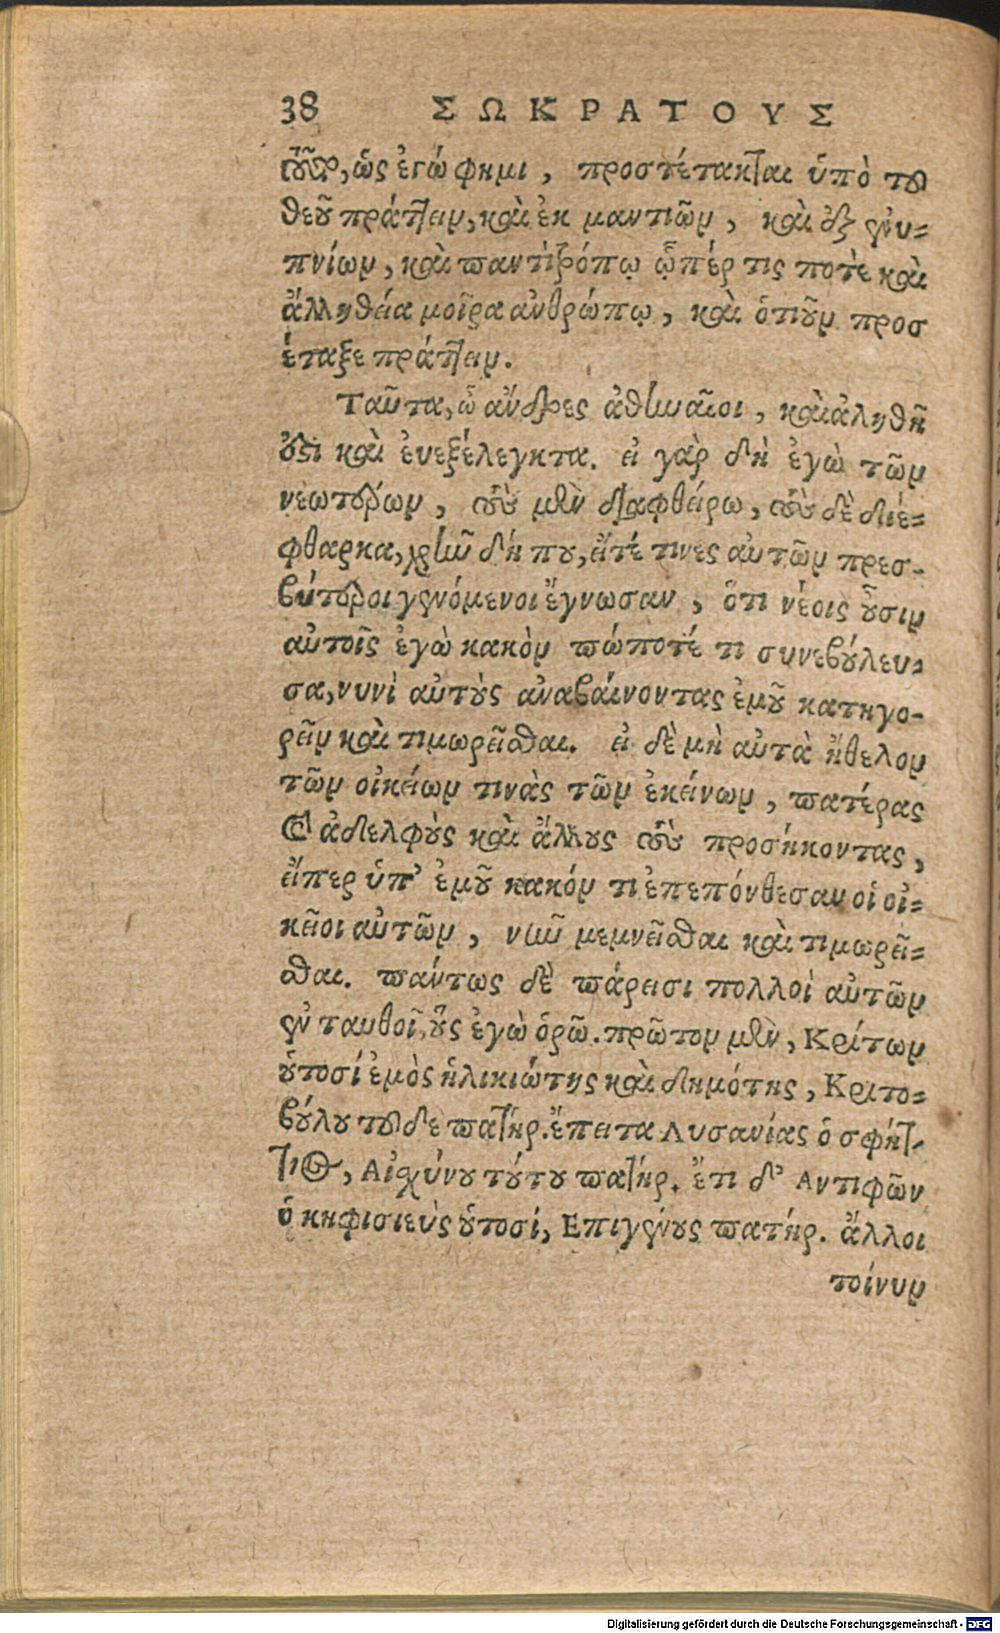 38 ΣΩΚΡΑΤΟΥΣ
τοῦτο, ὡς ἐγώ φημι, προστέτακται ὑπὸ τοῦ
θεοῦ πράττειν, καὶ ἐκ μαντιῶν, καὶ ἐξ ἐνυ-
πνίων, καὶ παντὶ τρόπῳ ᾧπέρ τις ποτὲ καὶ
ἄλλη θεία μοῖρα ἀνθρώπῳ, καὶ ὁτιοῦν προσ
έταξε πράττειν.
Ταῦτα, ὦ ἄνδρες ἀθηναῖοι, καὶ ἀληθῆ
ἐστι καὶ ἐυεξέλεγκτα. εἰ γὰρ δὴ ἐγὼ τῶν
νεωτέρων, τοὺς μὲν διαφθείρω, τοὺς δὲ διέ-
φθαρκα, χρῆν δή που, εἴτέ τινες αὐτῶν πρεσ-
βύτεροι γενόμενοι ἔγνωσαν, ὅτι νέοις οὖσιν
αὐτοῖς ἐγὼ κακὸν πώποτέ τι συνεβούλευ-
σα, νυνὶ αὐτοὺς ἀναβαίνοντας ἐμοῦ κατηγο-
ρεῖν καὶ τιμωρεῖσθαι. εἰ δὲ μὴ αὐτὰ ἤθελον
τῶν οἰκείων τινὰς τῶν ἐκείνων, πατέρας
καὶ ἀδελφοὺς καὶ ἄλλους τοὺς προσήκοντας,
εἴπερ ὑπ' ἐμοῦ κακόν τι ἐπεπόνθεσαν οἱ οἰ-
κεῖοι αὐτῶν, νῦν μεμνεῖσθαι καὶ τιμωρεῖ-
σθαι. πάντως δὲ πάρεισι πολλοὶ αὐτῶν
ἐνταυθοῖ, οὓς ἐγὼ ὁρῶ. πρῶτον μὲν, Κρίτων
οὑτοσί ἐμὸς ἡλικιώτης καὶ δημότης, Κριτο-
βούλου τοῦδε πατήρ. ἔπειτα Λυσανίας ὁ σφήτ-
τιος, Αἰσχύνου τούτου πατήρ. ἔτι δ' Αντιφῶν
ὁ κηφισιεὺς οὑτοσί, Επιγένους πατήρ. ἄλλοι
τοίνυν
Digitalisierung gefördert durch die Deutsche Forschungsgemeinschaft - DFG